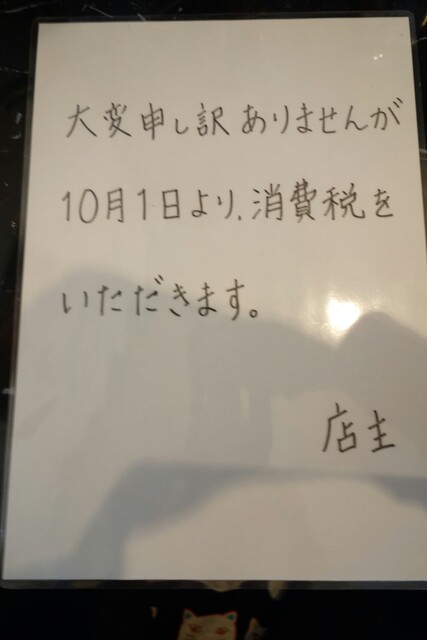 大変申し訳ありませんが
10月1日より、消費税を
いただきます。
店主